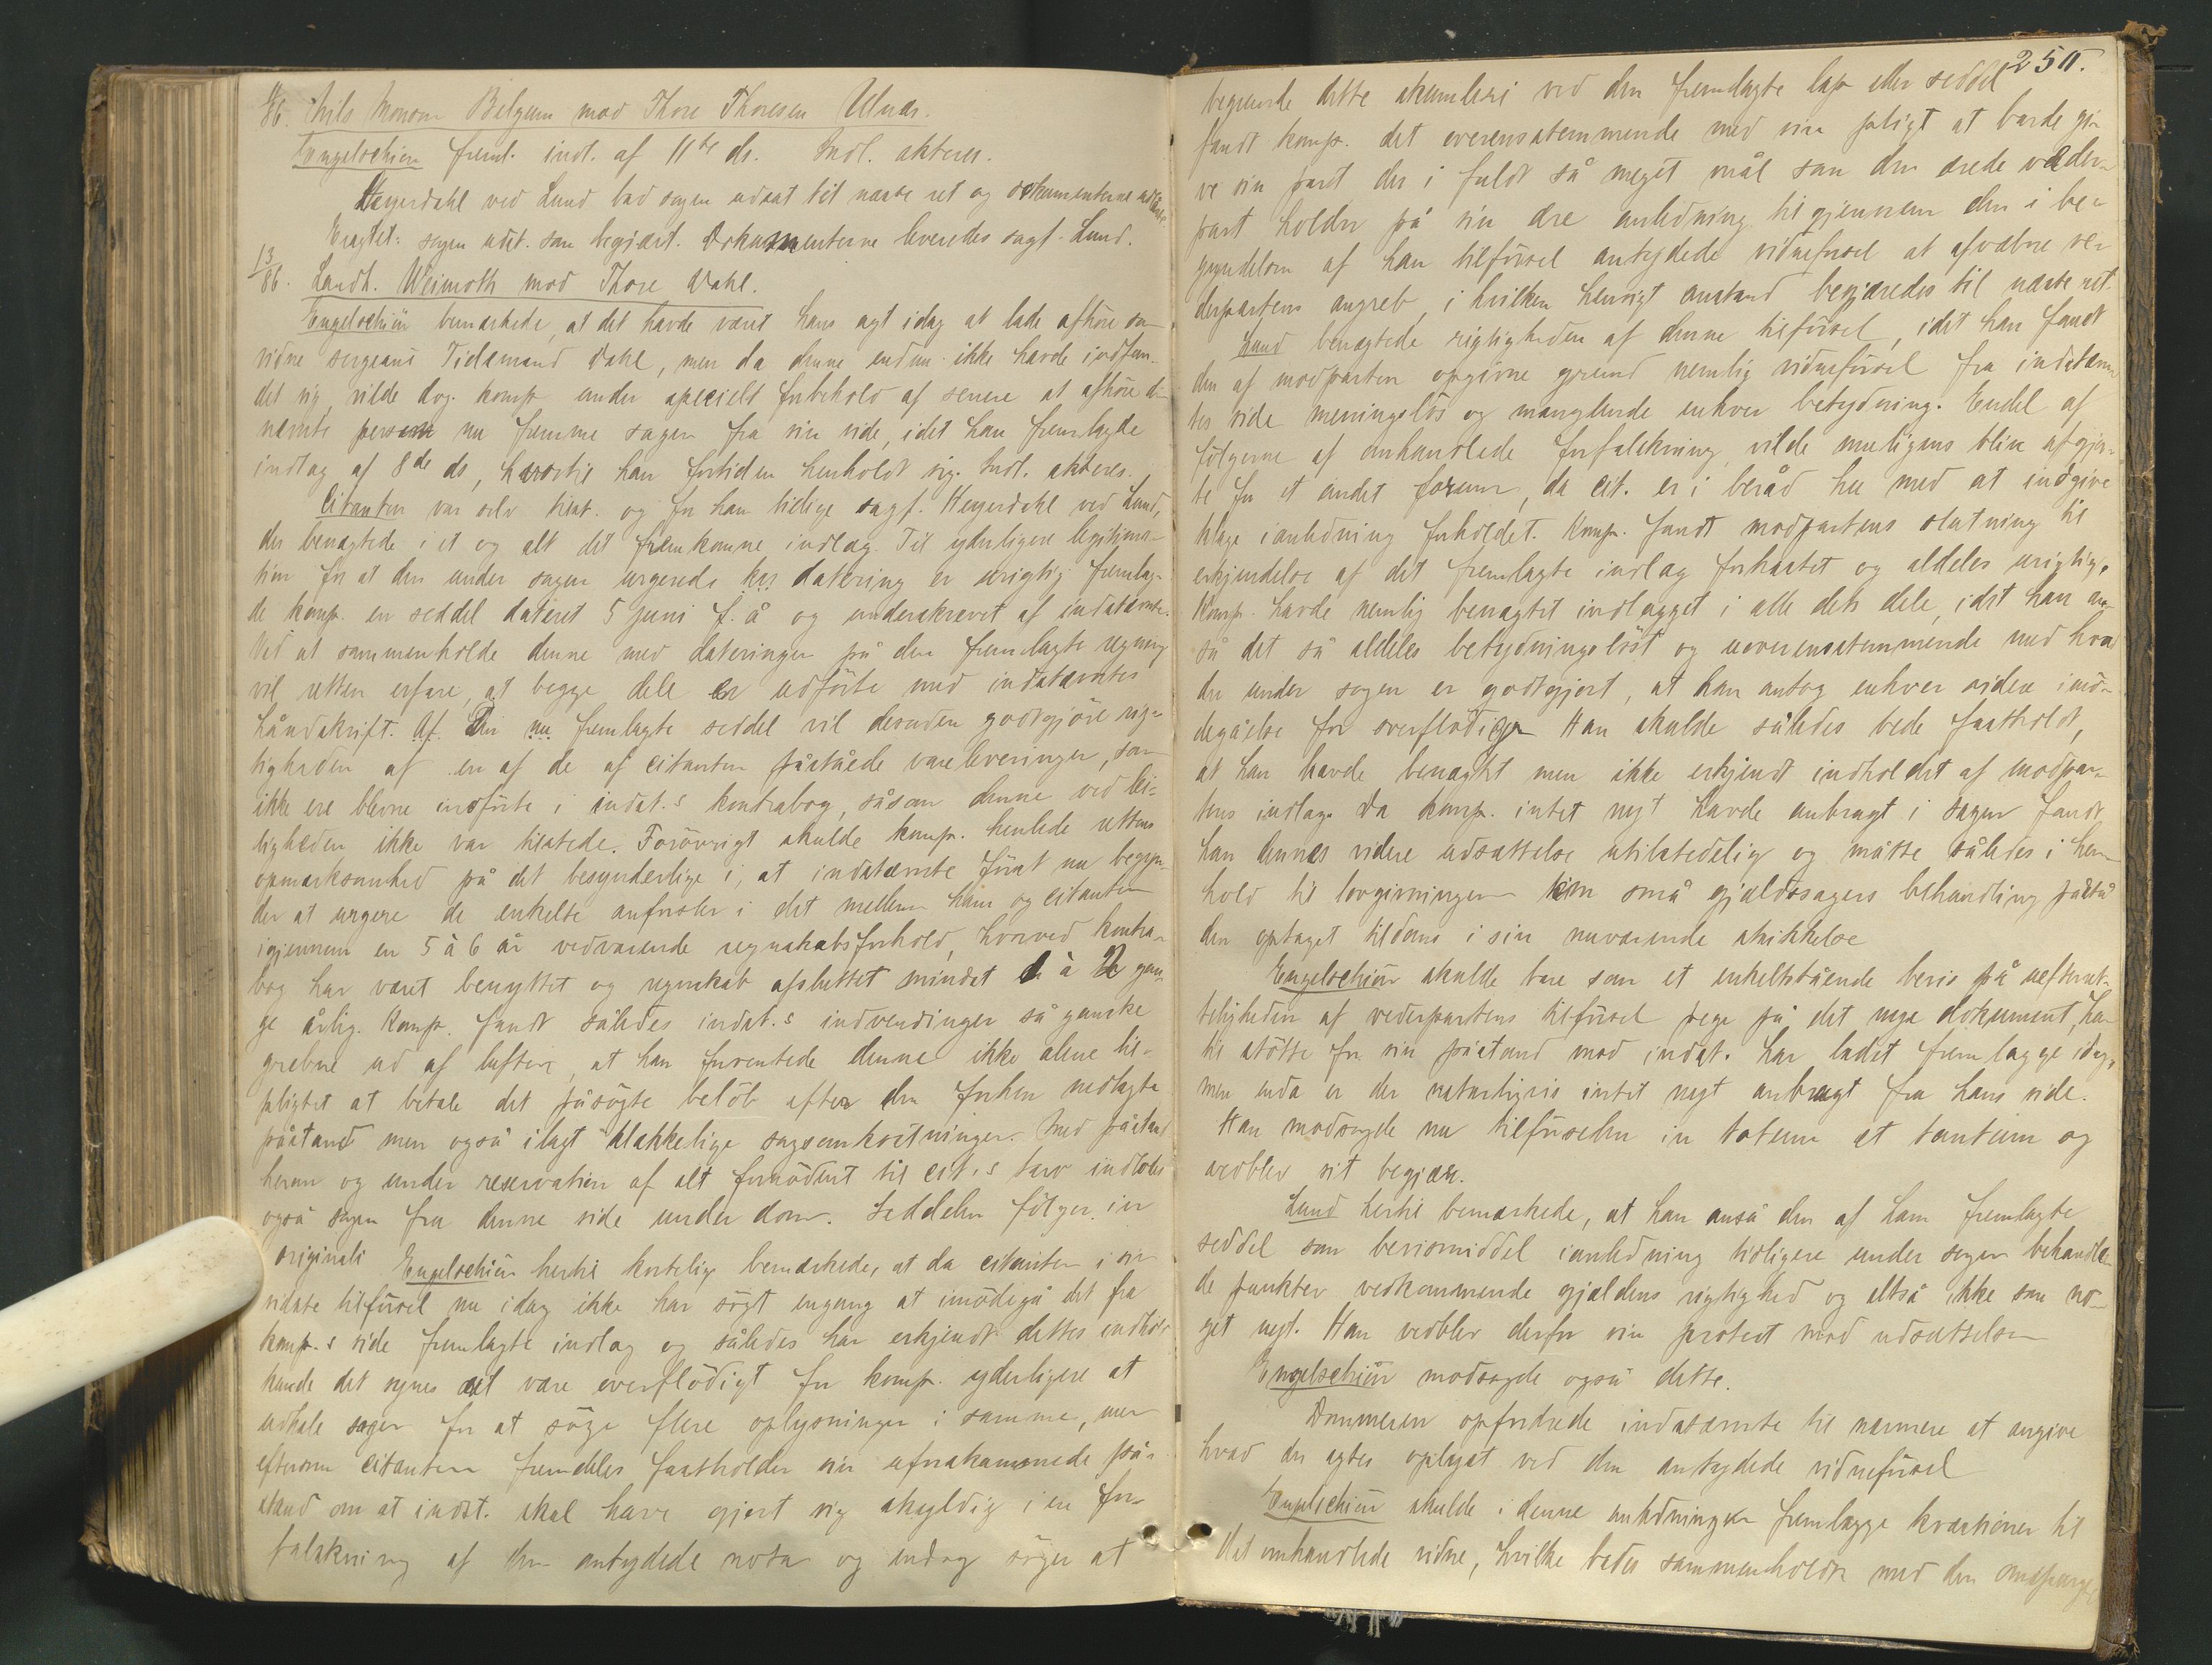 /86. Nils Monsen Belgum mod Thore Thoresen Ulnæs.
Engelschiøn freml. indl. af 11te ds. Indl. akteres.
Heyerdahl ved Lund bad sagen udsat til næste ret og dokumenterne
Eragtet: sagen udst. som begjært. Dokumenterne leveredes sagf. Lund.
13/86. Landh. Weimoth mod Thore Dahl.
Engelschiøn bemærkede, at det havde været hans agt idag at lade afhøre som
vidne sergeant Tidemand Dahl, men da denne endnu ikke havde indfun-
det sig, vilde dog komp. under specielt forbehold af senere at afhøre
nævnte person nu fremme sagen fra sin side, idet han fremlagde
indlæg af 8de ds, hvortil han fortiden henholdt sig. Indl. akteres.
Citanten var selv tilst. og for ham tidlige sagf. Heyerdahl ved Lund,
der benægtede i et og alt det fremkomne indlæg. Til yderligere legitima-
tion for at den under sagen urgerede datering er urigtig fremlag-
de komp. en seddel dateret 5 juni f. å og underskrevet af indstævnte.
Ved at sammenholde denne med dateringen på den fremlagte regning
vil retten erfare, at begge dele er udførte med indstævntes
håndskrift. Den nu fremlagte seddel vil desuden godtgjøre rig-
tigheden af en af de af citanten påståede vareleveringer, som
ikke ere blevne indførte i indst.s kontrabog, såsom denne ved lei-
ligheden ikke var tilstede. Forøvrigt skulde komp. henlede rettens
opmærksomhed på det besynderlige i, at indstævnte først nu begyn-
der at urgere de enkelte anførsler i det mellem ham og citanten
igjennem en 5 à 6 år vedvarende regnskabsforhold, hvorved kontra-
bog har været benyttet og regnskab afsluttet mindst 1 à 2 gan-
ge årlig. Komp. fandt således indst.s indvendinger så ganske
grebne ud af luften, at han forventede denne ikke alene til-
pligtet at betale det påsøgte beløb efter den forhen nedlagte
påstand men også ilagt klækkelige sagsomkostninger. Med påstand
herom og under reservation af alt fornødent til cit.s tarv indlodes
også sagen fra denne side under dom. Seddelen følger in
originali. Engelschiøn hertil kortelig bemærkede, at da citanten i sin
sidste tilførsel nu idag ikke har søgt engang at imødegå det fra
komp.s side fremlagte indlæg og således har erkjendt dettes indhold
kunde det synes at være overflødigt for komp. yderligere at
udhale sagen for at søge flere oplysninger i samme, men
eftersom citanten fremdeles fastholder sin uforskammede på-
stand om at indst. skal have gjort sig skyldig i en for-
falskning af den antydede nota og endog søger at
250.
begrunde dette skumleri ved den fremlagte lap eller seddel
fandt komp. det overensstemmende med sin pligt at burde gi-
ve sin part der i fuldt så meget mål som den ærede veder-
part holder på sin ære anledning til gjennem den i be-
gyndelsen af han tilførsel antydede vidneførsel at afvæbne ve-
derpartens angreb, i hvilken hensigt anstand begjæredes til næste ret.
Lund benægtede rigtigheden af denne tilførsel, idet han fandt
den af modparten opgivne grund nemlig vidneførsel fra indstævn-
tes side meningsløs og manglende enhver betydning. Endel af
følgerne af omhandlede forfalskning vilde muligens blive afgjor-
te for et andet forum, da cit. er i beråd hu med at indgive
klage i anledning forholdet. Komp. fandt modpartens slutning til
erkjendelse af det fremlagte indlæg forhastet og aldeles urigtig.
Komp. havde nemlig benægtet indlægget i alle dets dele, idet han an-
så det så aldeles betydningsløst og uoverensstemmende med hvad
der under sagen er godtgjort, at han antog enhver videre imø-
degåelse for overflødig. Han skulde således bede fastholdt,
at han havde benægtet men ikke erkjendt indholdet af modpar-
tens indlæg. Da komp. intet nyt havde anbragt i sagen fandt
han dennes videre udsættelse utilstedelig og måtte således i hen-
hold til lovgivningen om små gjældssagers behandling påstå
den optaget tildoms i sin nuværende skikkelse
Engelschiøn skulde bare som et enkeltstående bevis på uefterret-
teligheden af vederpartens tilførsel pege på det nye dokument, han
til støtte for sin påstand mod indst. har ladet fremlægge idag,
men enda er der naturligvis intet nyt anbragt fra hans side.
Han modsagde nu tilførselen in totum et tantum og
vedblev sit begjær.
Lund hertil bemærkede, at han anså den af ham fremlagte
seddel som bevismiddel i anledning tidligere under sagen behandle-
de punkter vedkommende gjældens rigtighed og altså ikke som no-
get nyt. Han vedblev derfor sin protest mod udsættelsen
Engelschiøn modsagde også dette.
Dommeren opfordrede indstævnte til nærmere at angive
hvad der agtes oplyst ved den antydede vidneførsel
Engelschiøn skulde i denne anledning fremlægge kvæstioner til
det omhandlede vidne, hvilke bedes sammenholdt med den